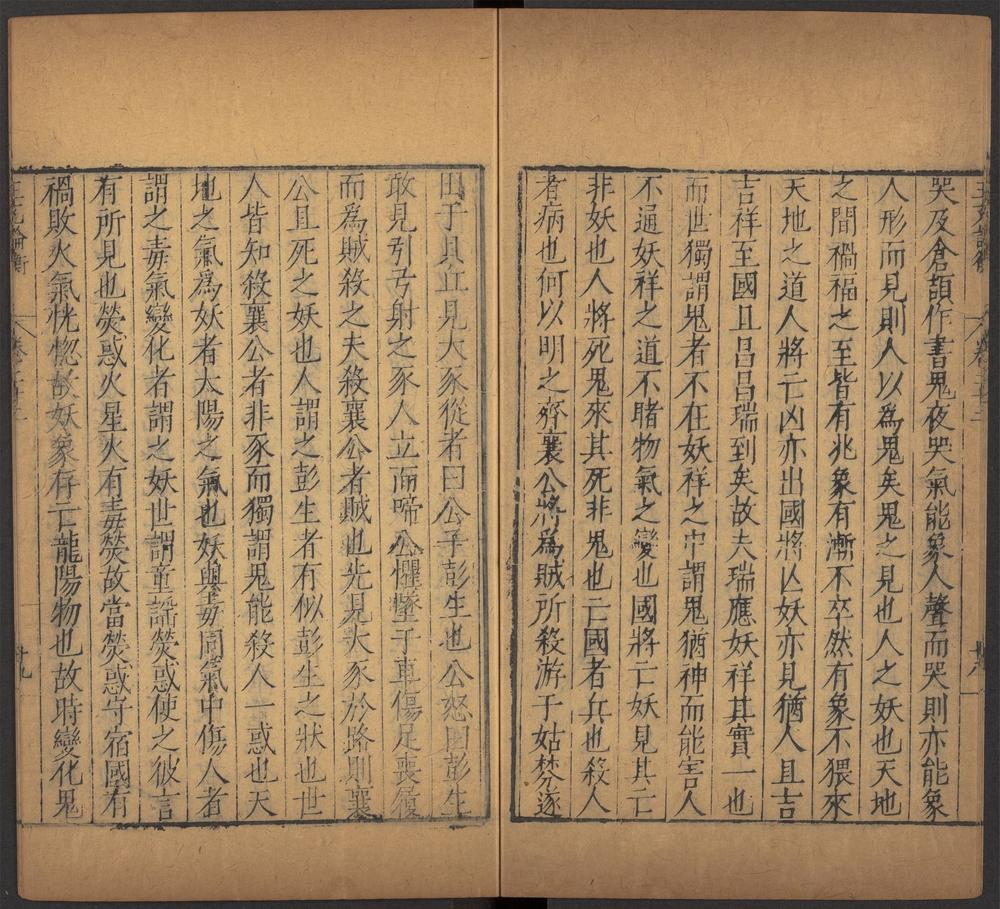 哭及倉頡作書鬼夜哭氣能象人聲而哭則亦能象
人形而見則人以為鬼矣鬼之見也人之妖也天地
之間禍福之至皆有兆象有漸不卒然有象不猥來
天地之道人將亡凶亦出國將亾妖亦見猶人且吉
吉祥至國且昌昌瑞到矣故夫瑞應妖祥其實一也
而世獨謂鬼者不在妖祥之中謂鬼猶神而能害人
不通妖祥之道不睹物氣之變也國將亡妖見其亡
非妖也人將死鬼來其死非鬼也亡國者兵也殺人
者病也何以明之齊襄公將為賊所殺游于姑棼遂
田于貝丘見大豕從者曰公子彭生也公怒曰彭生
敢見引弓射之豕人立而啼公懼墜于車傷足喪履
而為賊殺之夫殺襄公者賊也先見大豕於路則襄
公且死之妖也人謂之彭生者有似彭生之狀也世
人皆知殺襄公者非豕而獨謂鬼能殺人一惑也天
地之氣為妖者太陽之氣也妖與毒同氣中傷人者
謂之毒氣變化者謂之妖世謂童謡熒惑使之彼言
有所見也熒惑火星火有毒熒故當熒惑守宿國有
禍敗火氣恍惚故妖象存亡龍陽物也故時變化鬼